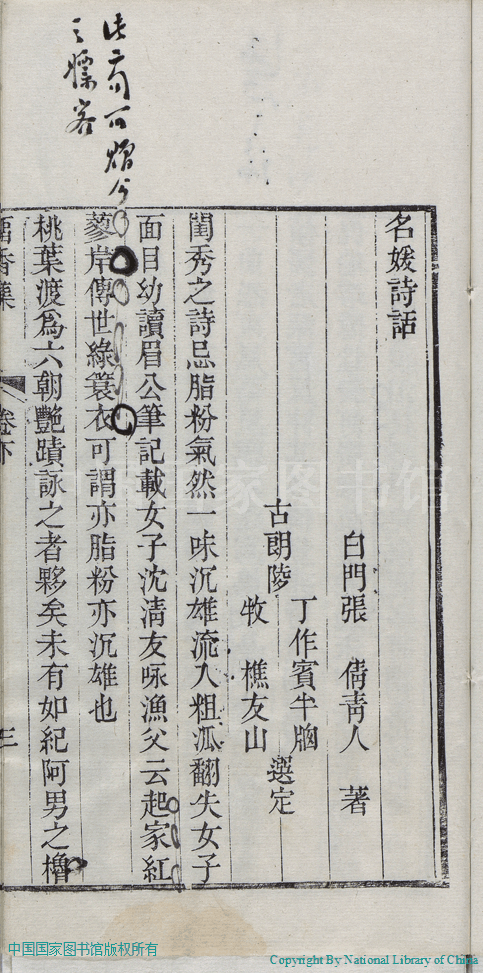 名媛詩話
白門張 倩靑人 著
古朗陵
丁作賓半牕
牧 樵友山
選定
閨秀之詩忌脂粉氣然一味沉雄流入粗派翻失女子
面目幼讀眉公筆記載女子沈淸友咏漁父云起家紅
蓼岸傳世綠簑衣可謂亦脂粉亦沉雄也
桃葉渡爲六朝艷蹟詠之者夥矣未有如紀阿男之櫓
卷亦
三
中国国家图书馆
中国国家图书馆版权所有
Copyright By National Library of China